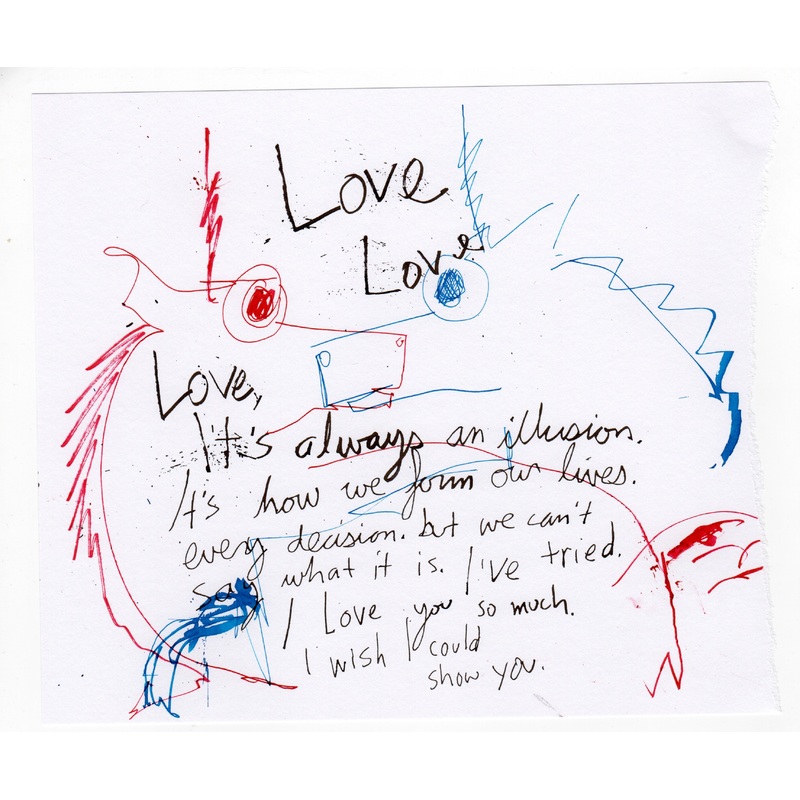 Love
Love
Love,
It's always an illusion.
It's how we form our lives.
every decision. but we can't
say what it is. I've tried.
I Love you so much.
I wish I could
show you.